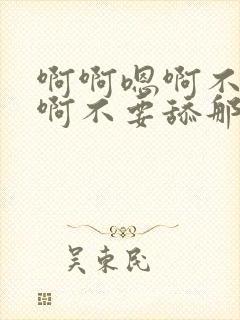 啊啊嗯啊不
啊不要舔那
吴东民